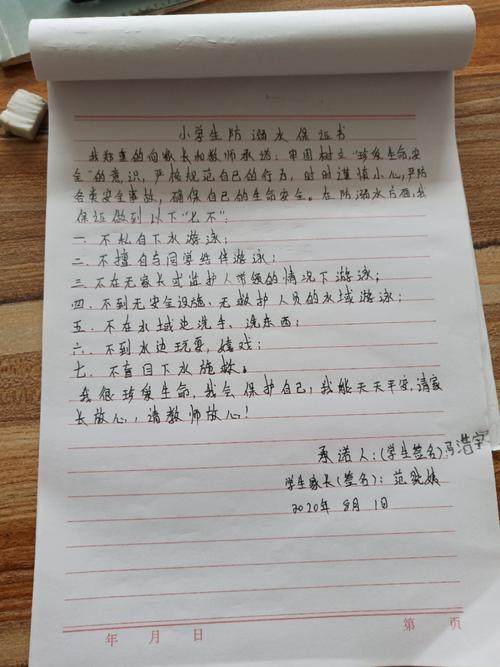 小学生防溺水保证书
我郑重的向家长和教师承诺：牢固树立"珍爱生命，安
全"的意识，严格规范自己的行为，时时谨慎小心，严防
各类安全事故，确保自己的生命安全。在防溺水方面，我
保证做到以下"七不"：
一．不私自下水游泳；
二．不擅自与同学结伴游泳；
三．不在无家长或监护人带领的情况下游泳；
四．不到无安全设施、无救护人员的水域游泳；
五．不在水域边洗手、洗东西；
六．不到水边玩耍，嬉戏；
七．不盲目下水施救。
我很珍爱生命，我会保护自己，我能天天平安，请家
长放心，请教师放心！
承诺人：(学生签名)冯浩宇
学生家长(签名)：范
2020年8月1日
年 月 日 第 页